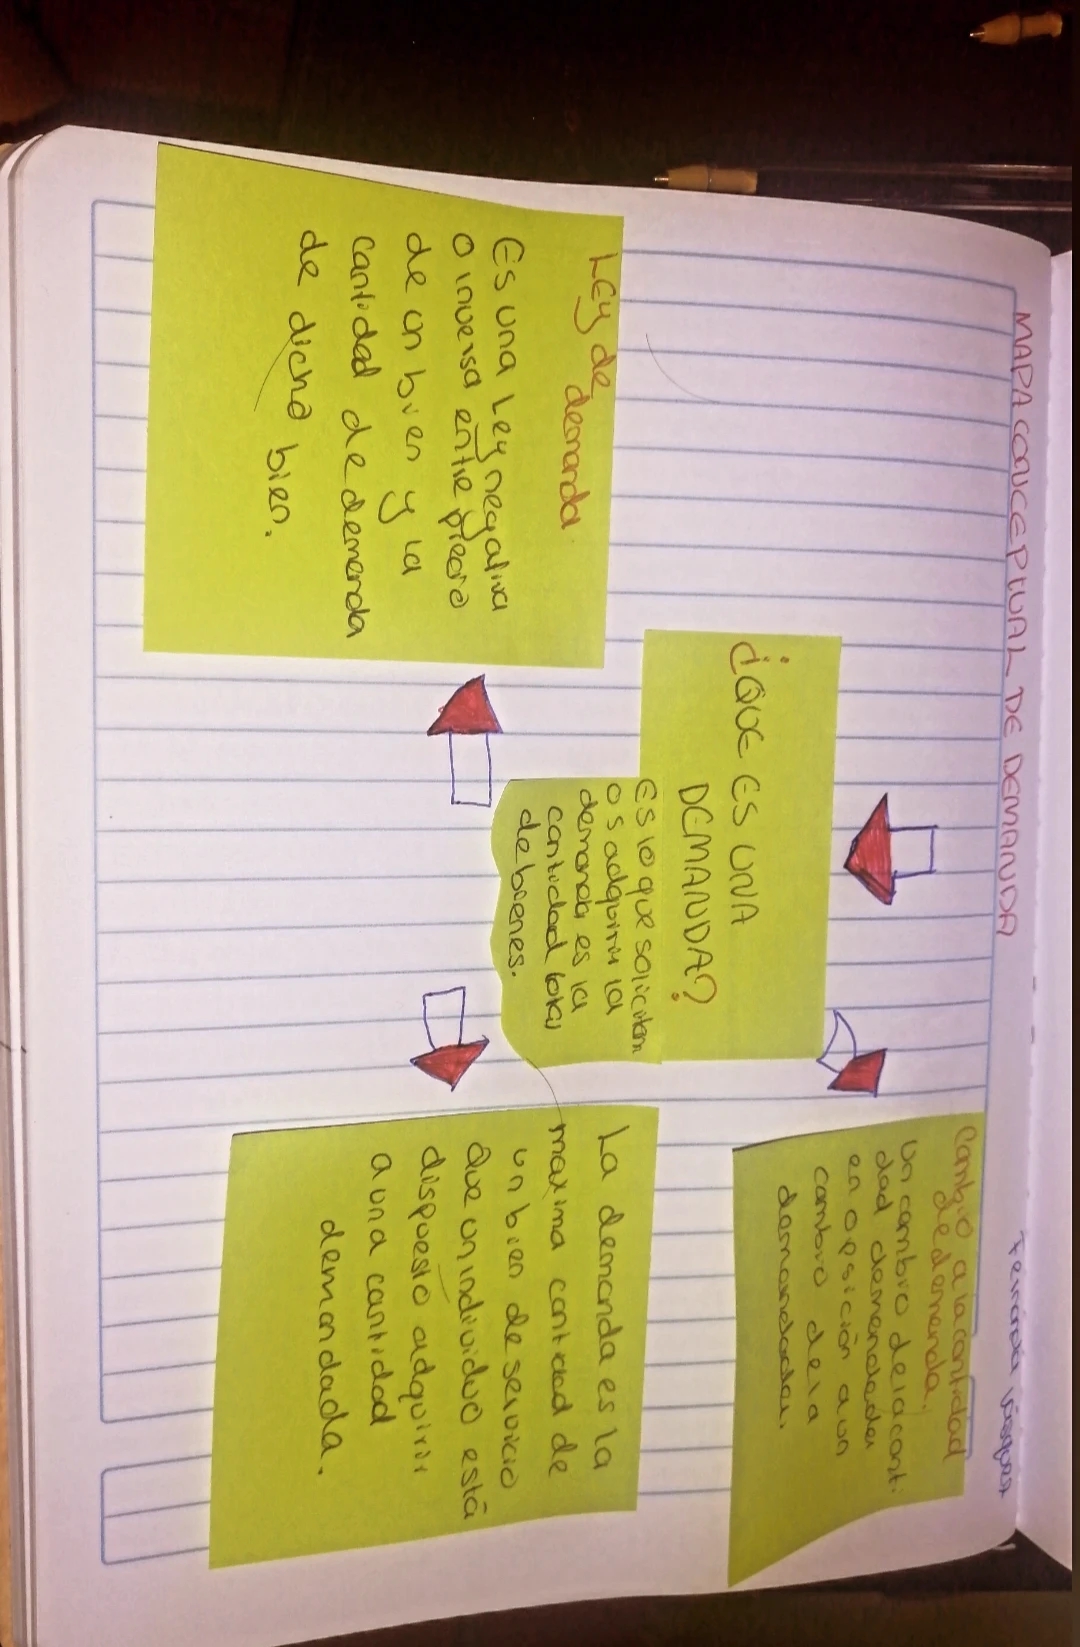 MAPA CONCEPTUAL DE DEMANDA
Fernanda Vásquez
¿QUE ES UNA
DEMANDA?
Es lo que solicitam
o s adquirir la
demanda es la
cantidad total
de bienes.
Ley de
demanda.
Es una Ley negativa
o inversa entre precio
de un bien y la
cantidad de demenda
de dicho bien.
Cambio a la cantidad
de demenda.
un cambio de la canti-
dad demendada
en opsición a un
cambio de la
demandada.
La demanda es la
maxima cantidad de
un bien de servicio
Que un individuo está
dispuesto adquirir
a una cantidad
demandada.